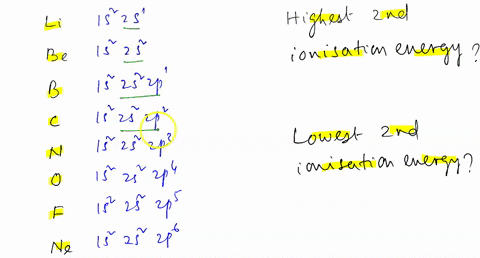 Li 1s² 2s¹
Be 1s² 2s²
B 1s² 2s² 2p¹
C 1s² 2s² 2p²
N 1s² 2s² 2p³
O 1s² 2s² 2p⁴
F 1s² 2s² 2p⁵
Ne 1s² 2s² 2p⁶
Highest 2nd
ionisation energy?
Lowest 2nd
ionisation energy?